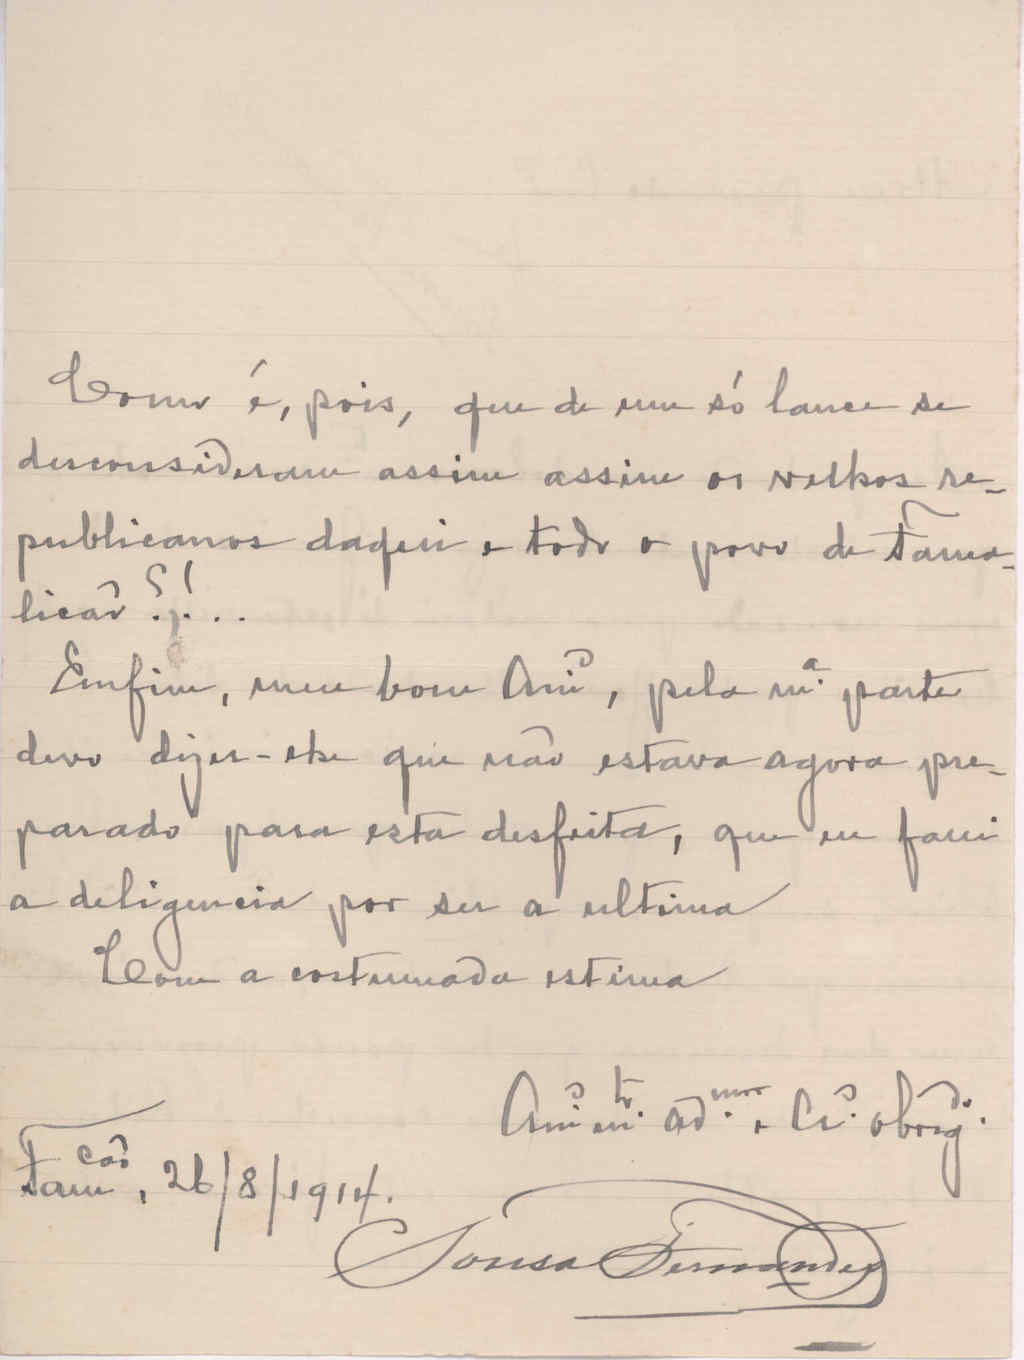 Como é, pois, que de um só lance se
desconsideram assim assim os velhos re-
publicanos daqui e todo o povo de Fama-
licão?!...
Emfim, meu bom Amº, pela m.ª parte
devo dizer-lhe que não estava agora pre-
parado para esta desfeita, que eu farei
a deligencia por ser a ultima
Com a costumada estima
Amº m.to ad.mor e Cr.º obrig.do
Famcão, 26/8/1914.
Sousa Fernandes